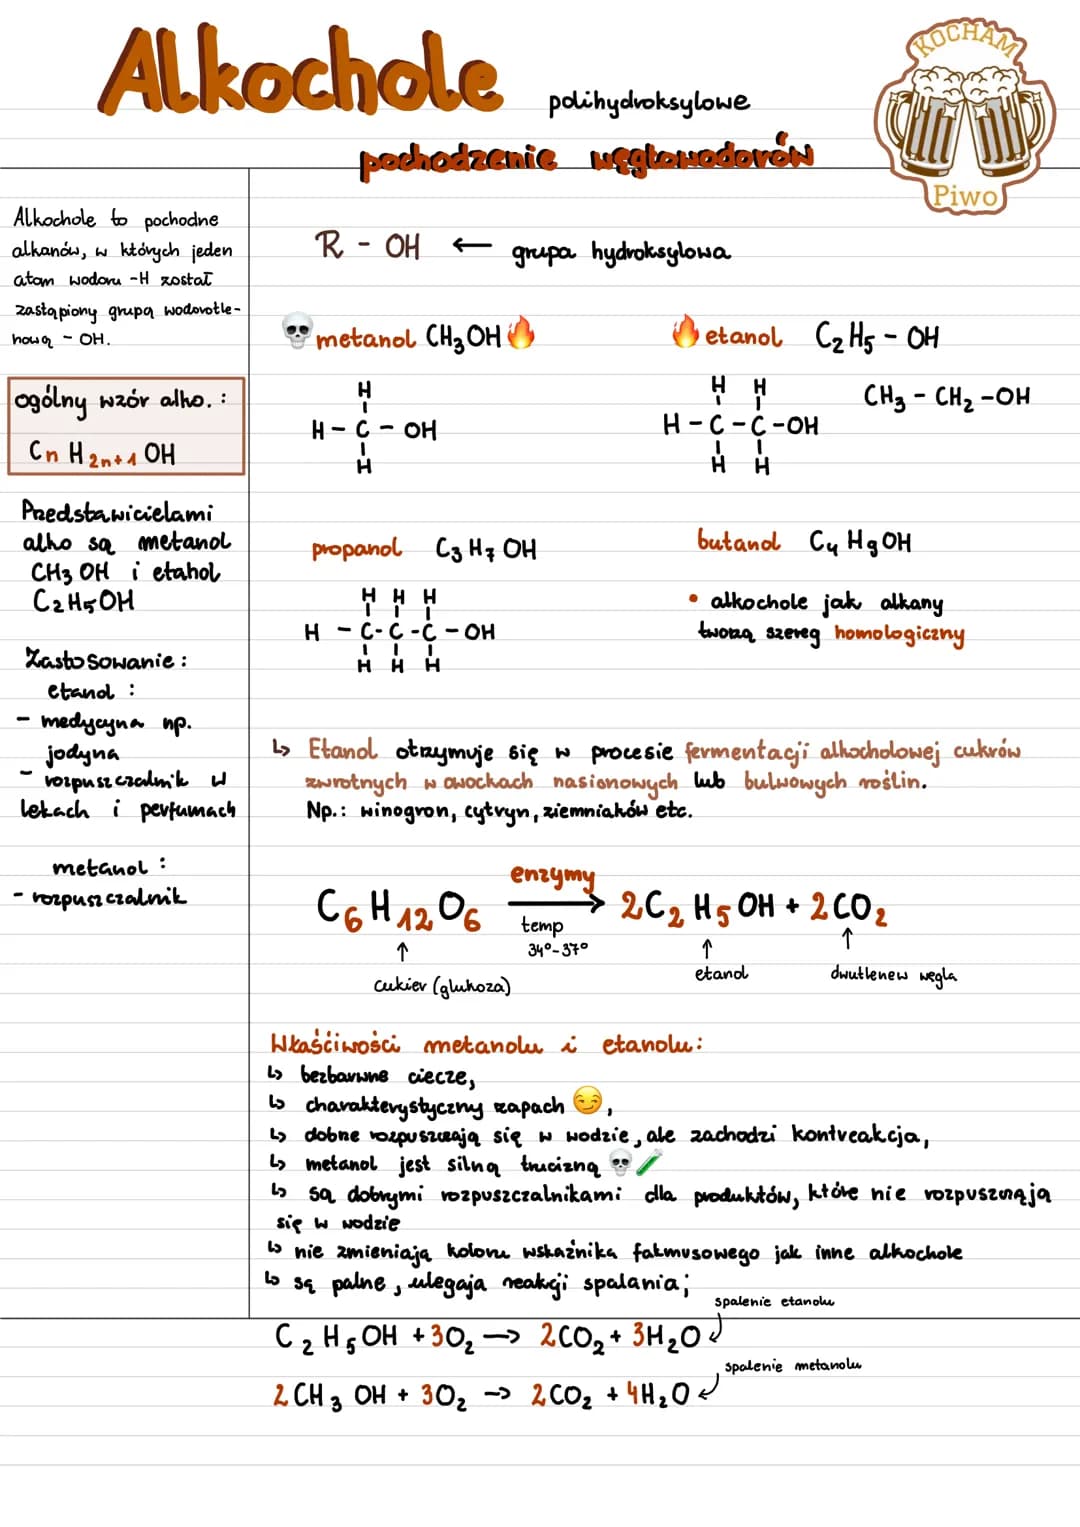 Alkochole
polihydroksylowe
pochodzenie węglowodorów
KOCHAM
Piwo
Alkochole to pochodne
alkanów, w których jeden
atom wodoru -H został
zastąpiony grupą wodorotle-
nową - OH.
ogólny wzór alko. :
Cn H2n+1 OH
Przedstawicielami
alko są metanol
CH3 OH i etanol
C2H5OH
Zastosowanie :
etanol :
- medycyna np.
jodyna
- rozpuszczalnik w
lekach i perfumach
metanol :
- rozpuszczalnik
R - OH ← grupa hydroksylowa
💀 metanol CH3OH 🔥
H
H - C - OH
H
🔥 etanol C2H5 - OH
CH3 - CH2 - OH
H H
H - C - C - OH
H H
propanol C3H7OH
H H H
H - C - C - C - OH
H H H
butanol C4H9OH
• alkochole jak alkany
tworzą szereg homologiczny
↳ Etanol otrzymuje się w procesie fermentacji alkocholowej cukrów
zwrotnych w owockach nasionowych lub bulwowych roślin.
Np.: winogron, cytryn, ziemniaków etc.
enzymy
C6H12O6 → 2C2H5OH + 2CO2
temp
34°-37°
↑ ↑ ↑
cukier (glukoza) etanol dwutlenew węgla
Właściwości metanolu i etanolu:
↳ bezbarwne ciecze,
↳ charakterystyczny zapach 😏,
↳ dobrze rozpuszczają się w wodzie, ale zachodzi kontreakcja,
↳ metanol jest silną trucizną 💀🧪
↳ są dobrymi rozpuszczalnikami dla produktów, które nie rozpuszczają
się w wodzie
↳ nie zmieniają koloru wskaźnika fakmusowego jak inne alkochole
↳ są palne, ulegaja reakcji spalania;
spalenie etanolu
C2H5OH + 3O2 → 2CO2 + 3H2O
spalenie metanolu
2CH3OH + 3O2 → 2CO2 + 4H2O